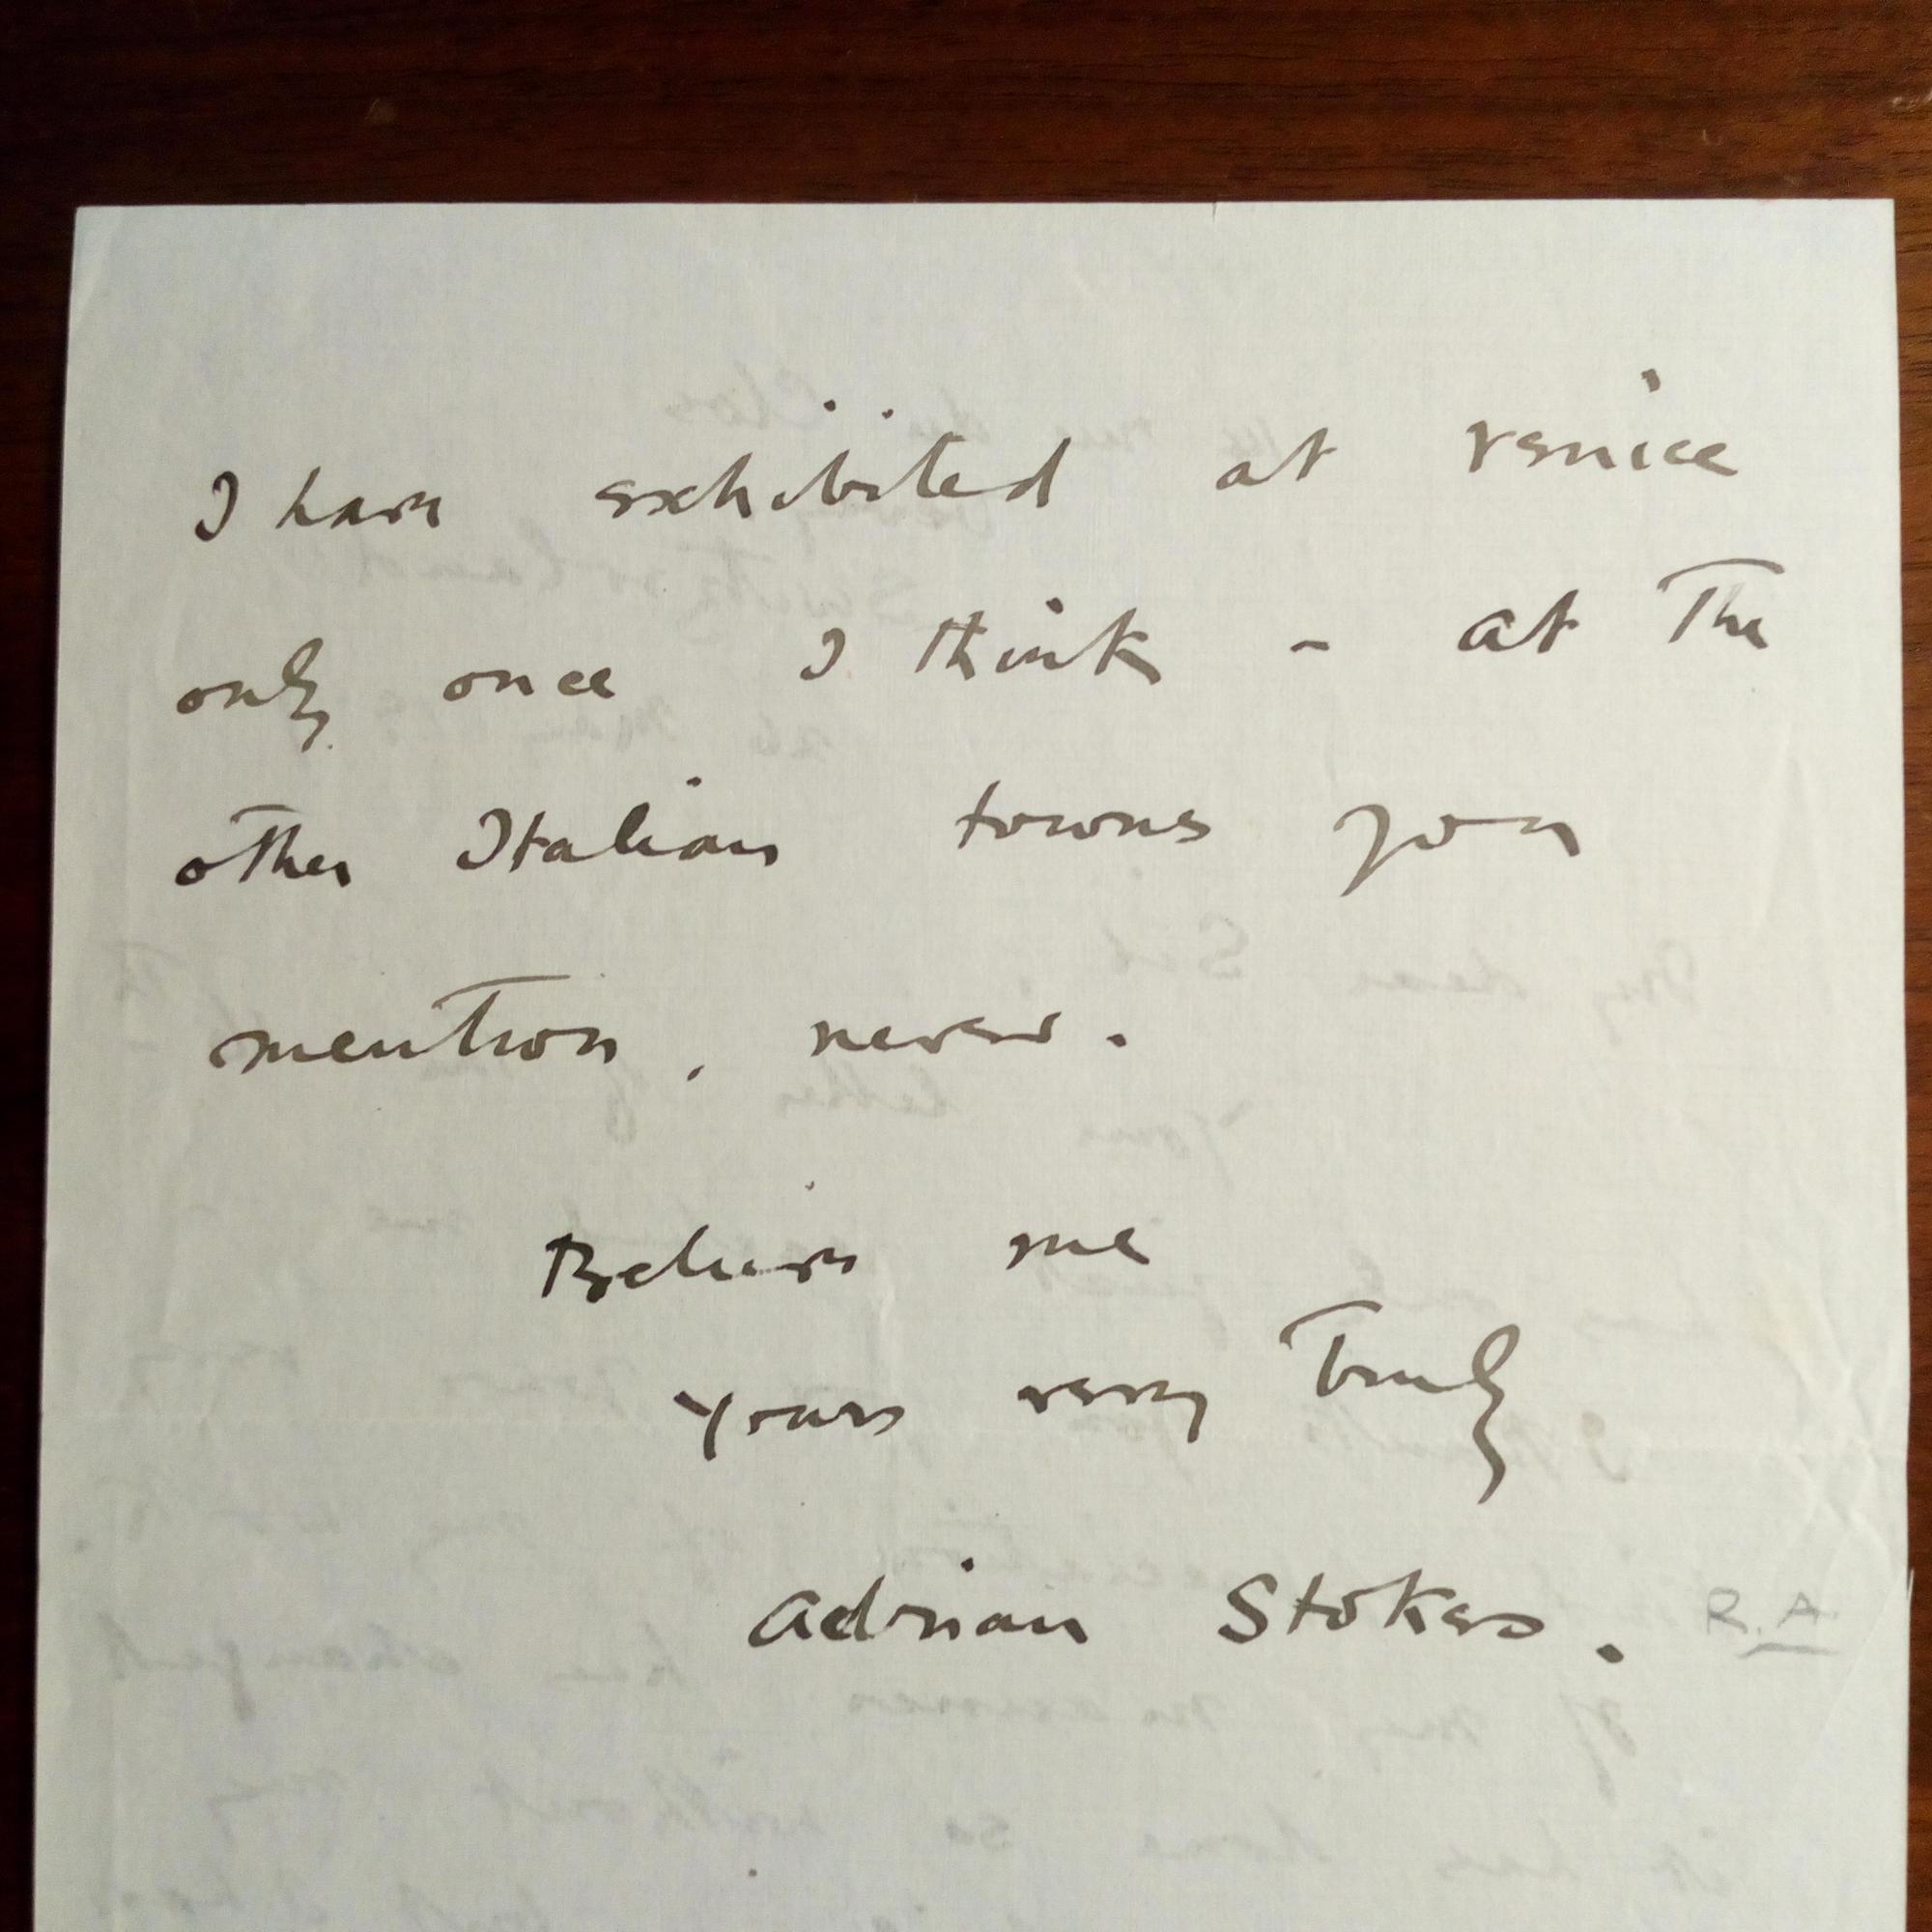 I have exhibited at Venice
only once I think - at the
other Italian towns you
mention, never.
Believe me
Yours very truly
Adrian Stokes. R.A.